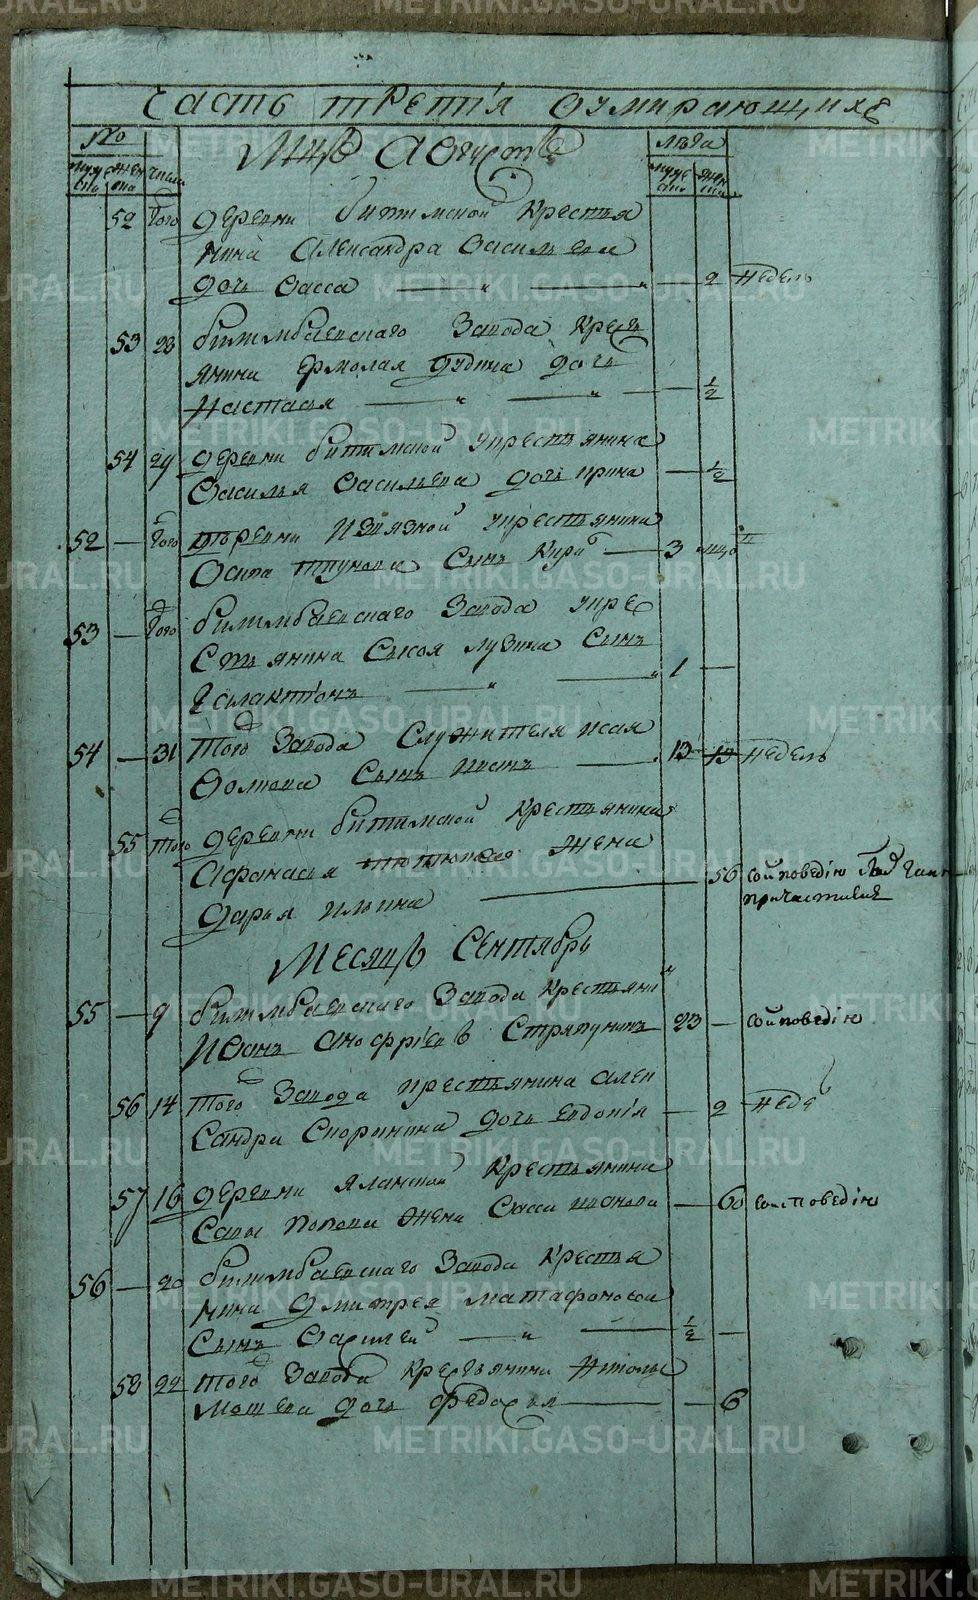 Часть третiя оумирающихъ
No
Мцъ Августъ
лета
муже ска
жен ска
числа
муже ска
жен ска
52 того деревни битимской крестья
нина Александра Васильева
дочь Васса — " — " — 2 недель
53 23 билимбаевскаго завода крест
янина Ермолая Дудина дочь
Настасья — " — " — 1/2
54 29 деревни битимской крестьянина
Василья Васильева дочь Ирина — 1/2
52 — того деревни Извязной крестьянина
Осипа Сынъ — 3
53 — того билимбаевскаго завода кре
стьянина Сысоя лузина Сынъ
Галактiонъ — " — " 1 —
54 — 31 того завода Служителя Исая
Сынъ Иванъ — 13 13 недель
55 того деревни битимской крестьянина
Афанасья жена
Дарья Ильина — 56 соисповедiю
причастиия
Месяцъ Сентябрь
55 — 9 билимбаевскаго завода крестьяни
Иванъ Анофрiевъ Стряпунинъ 23 — соисповедiю
56 14 того завода крестьянина Алек
Сандра Споринина дочь Евдокiя — 2 неде
57 16 деревни Яланской крестьянина
Савы Попова жена Васса Иванова — 60 соисповедiю
56 — 20 билимбаевскаго завода крестья
нина Дмитрея Матафонова
Сынъ Василей — " — 1/2 —
58 22 того завода крестьянина Николы
Мошева дочь Федосья — — 6